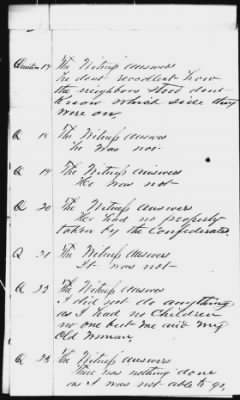 Question 17 The Witness answers
he dont recollect how
the neighbors stood dont
know which side they
were on
Q 18 The Witness answers
He was not
Q 19 The Witness answers
He was not
Q 20 The Witness answers
He had no property
taken by the Confederates.
Q 21 The Witness answers
It was not
Q 22 The Witness answers
I did not do anything
as I had no Children
no one but me and my
Old Woman.
Q 23 The Witness answers
There was nothing done
as I was not able to go,